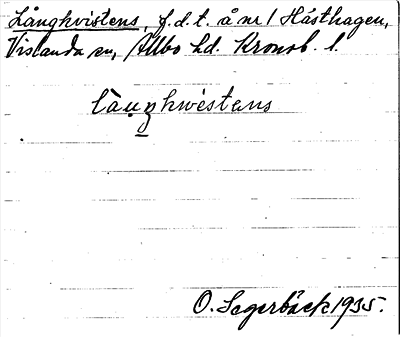 Långkvistens, f.d.t. å nr 1 Hästhagen,
Vislanda sn, Allbo hd. Kronob. l.
làngkwistens
O. Sagerbäck 1935.